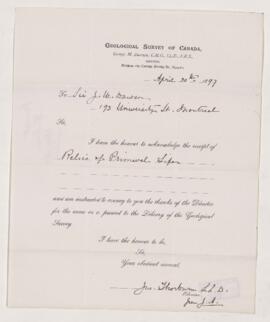 GEOLOGICAL SURVEY OF CANADA,
GEORGE M. DAWSON, C.M.G., LL.D., F.R.S.,
DIRECTOR.
April 20th 1897
To Sir J. W. Dawson
193 University St. Montreal
Sir,
I have the honour to acknowledge the receipt of
Relics of Primeval Life
and am instructed to convey to you the thanks of the Director
for the same as a present to the Library of the Geological
Survey.
I have the honour to be,
Sir,
Your obedient servant,
Jno. Thorburn LL.D.
Librarian